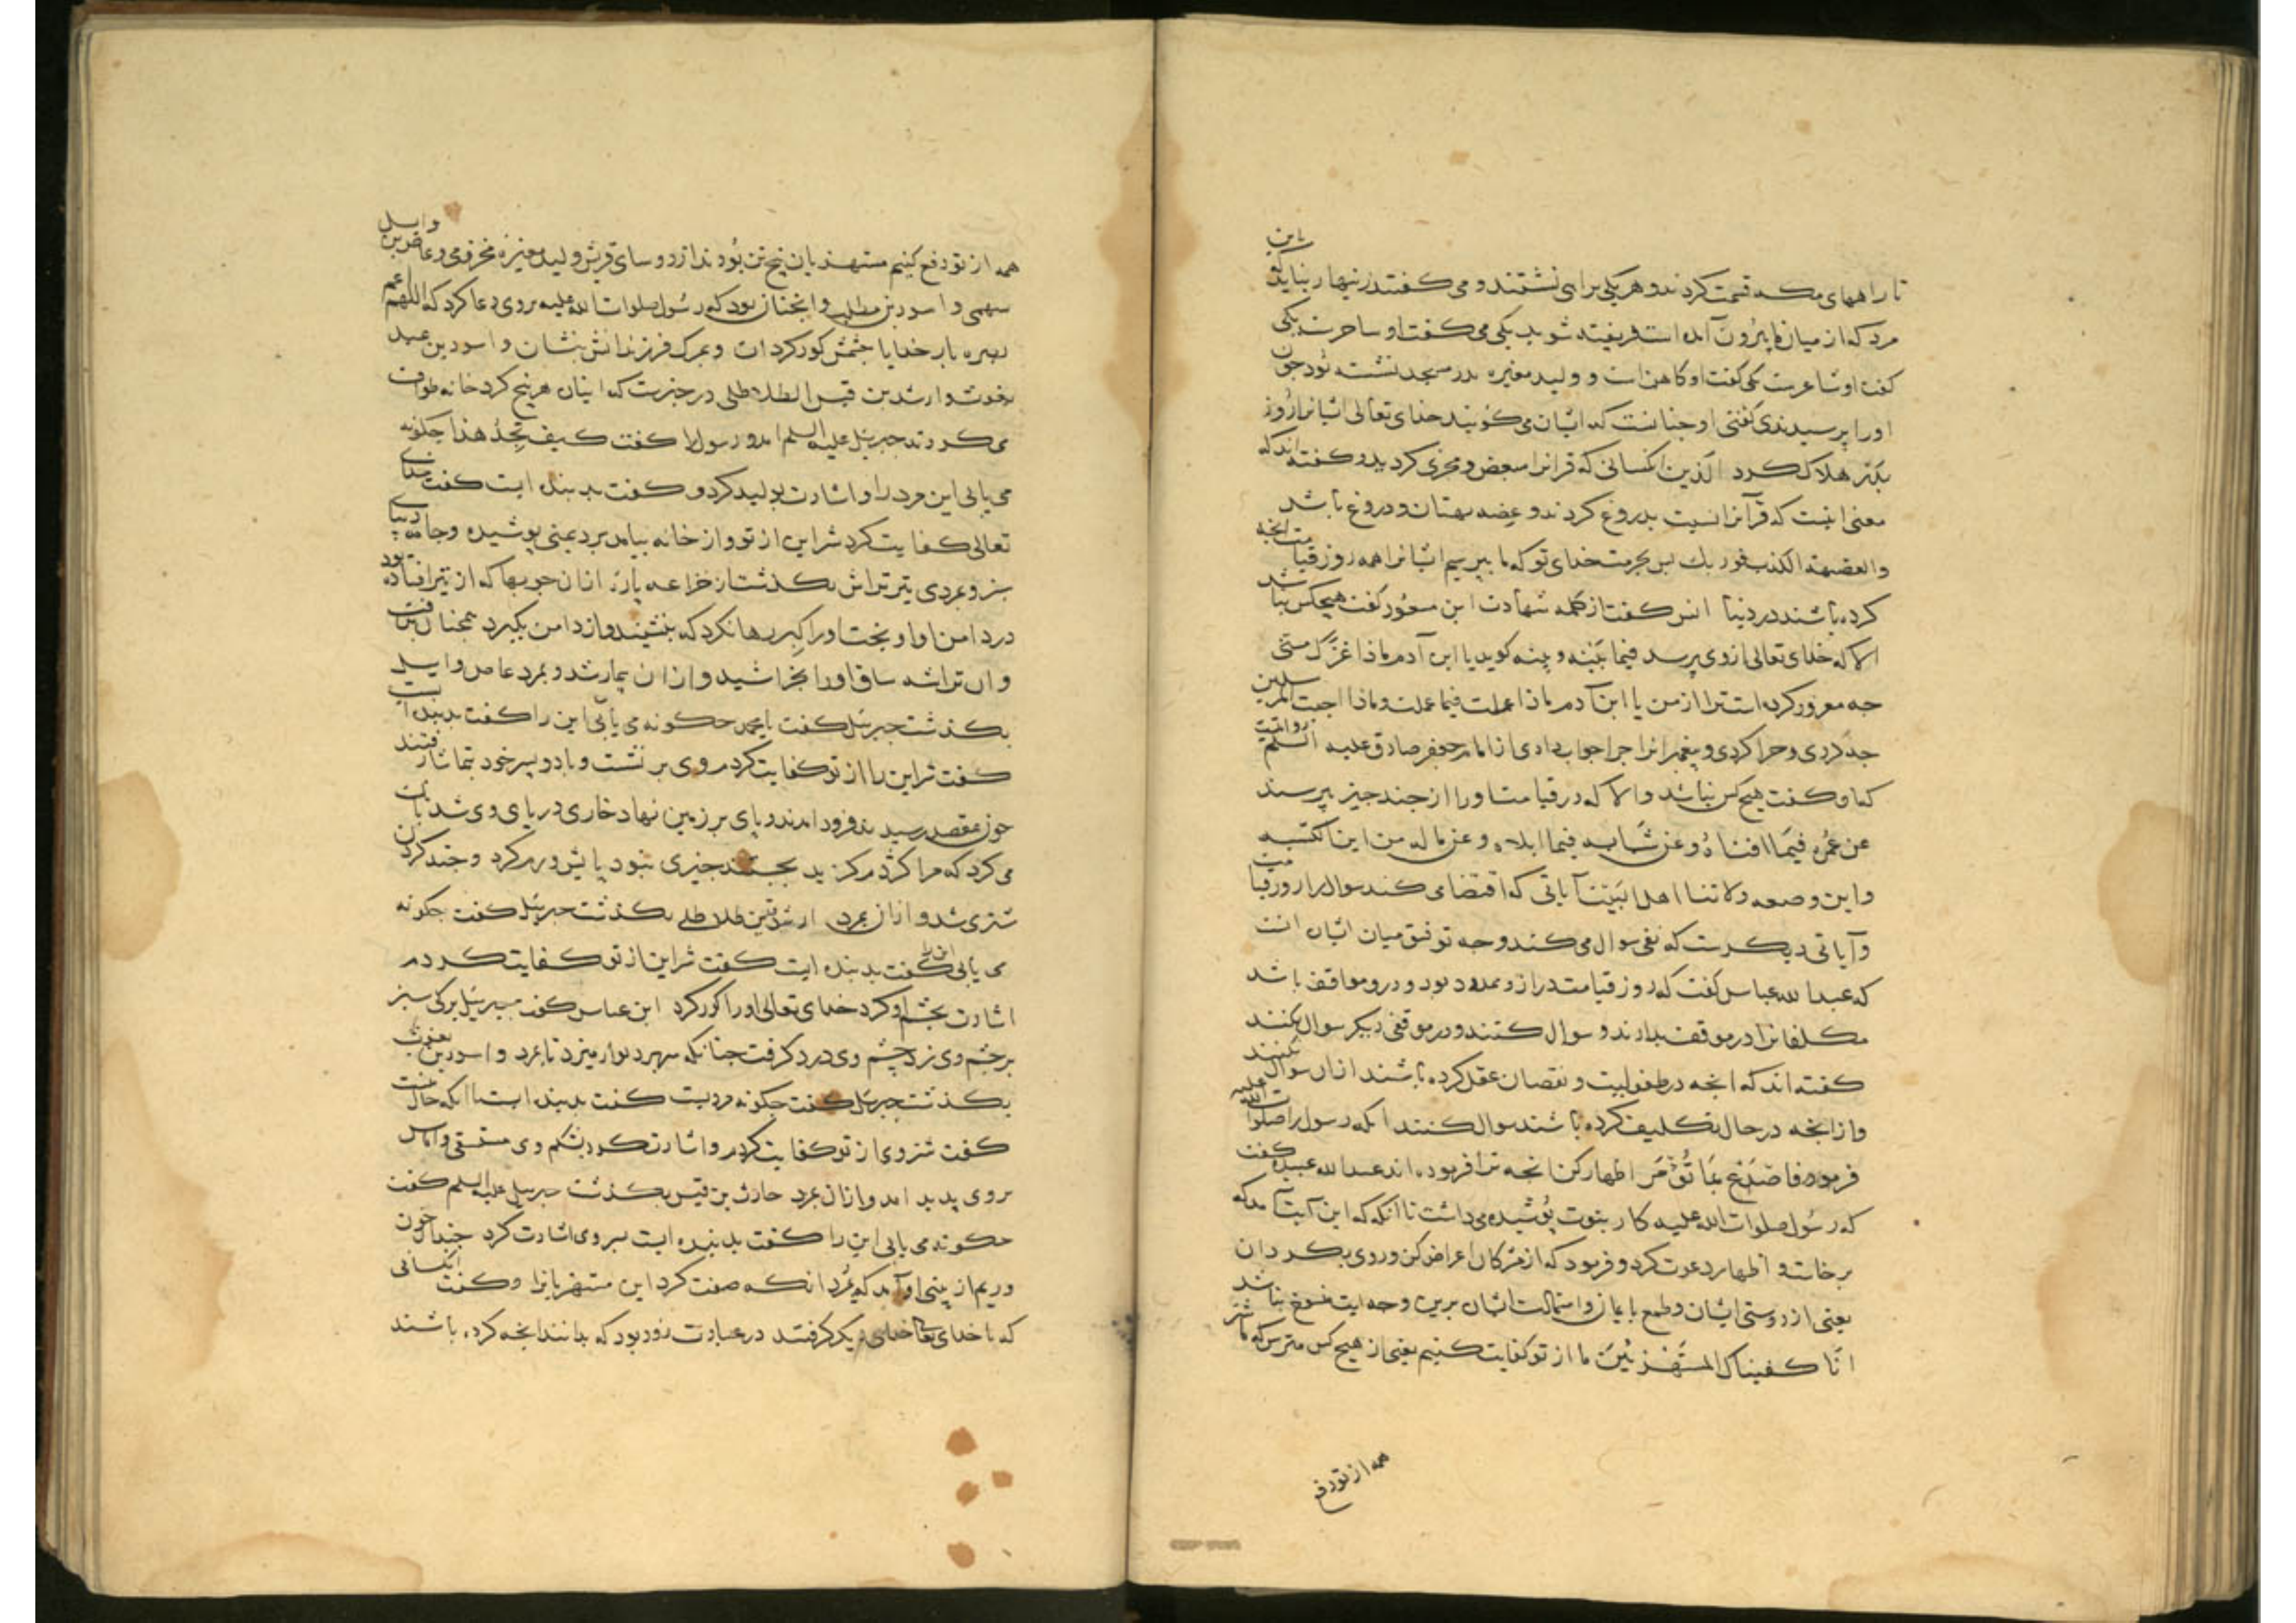 تا راههای مکه قسمت کردند و هر یکی براهی نشستند و می کفتند زنیهار نباید که باین
مرد که از میان ما بیرون آمده است فریفته شوید یکی می کفت او ساحرست یکی
کفت او شاعرست یکی کفت او کاهن است و ولید مغیره بدر مسجد نشسته بود جون
اورا پرسیدندی کفتی او جنانست که ایشان می کویند خدای تعالی ایشانرا روز
بدر هلاک کرد الذین انکسانی که قرانرا مبعض و مجزی کردید و کفته اند که
معنی انست که قرآنرا نسبت بدروغ کردند و عضه بهتان و دروغ باشد
والعضیهة الکذب فوربك بس بحرمت خدای تو که ما بپرسیم ایشانرا همه روز قیامت انجه
کرده باشند در دنیا انس کفت از کلمه شهادت ابن مسعود کفت هیجکس نباشد
الا که خدای تعالی از وی پرسد فیما بینه و بینه کوید یا ابن آدم ماذا غرّک منّی
جه مغرور کرده است ترا از من یا ابن آدم ماذا عملت فیما علمت و ماذا اجبت المرسلین
جه کردی و جرا کردی و پیغمبرانرا جرا جواب دادی از امام جعفر صادق علیه السلم روایتست
که او کفت هیج کس نباشد والا که در قیامت اورا از جند جیز بپرسند
عن عمره فیما افناه وعن شبابه فیما ابلاه وعن ماله من این اکتسبه
واین وضعه ولاتنا اهل البیت آیاتی که اقتضای کند سوال را روز قیامت
وآیاتی دیکرست که نفی سوال می کند وجه توفیق میان ایشان انست
که عبدالله عباس کفت که روز قیامت دراز و ممدود بود و درو مواقف باشد
مکلفانرا در موقف بدارند و سوال کنند و در موقفی دیکر سوال نکنند
کفته اند که انجه در طفولیت و نقصان عقل کرده باشند ازان سوال نکنند
وازانجه در حال تکلیف کرده باشند سوال کنند انکه رسول را صلوات الله علیه
فرمود فاصدع بما تؤمر اظهار کن انجه ترا فرموده اند عبدالله عبیده کفت
که رسول صلوات الله علیه کار نبوت پوشیده می داشت تا انکه که این آیت آمد که
برخاست و اظهار دعوت کرد و فرمود که از مشرکان اعراض کن و روی بکردان
یعنی از دوستی ایشان و طمع بایمان و استمالت ایشان برین وجه ایت منسوخ نباشد
انّا کفیناک المستهزئین ما از تو کفایت کنیم یعنی از هیچ کس مترس که ما شر
همه از تو دفع
همه از تو دفع کنیم مستهزیان پنج تن بودند از روسای قریش ولید مغیره مخزومی و عاص بن وایل
سهمی و اسود بن مطلب و انجنان بود که رسول صلوات الله علیه بروی دعا کرد که اللهم عم
بصره بار خدایا جشمش کور کردان و بمرک فرزندانش بنشان و اسود بن عبد
یغوث و ارشد بن قیس الطلاطلی در جبرست که اینان هر پنج کرد خانه طواف
می کردند جبرئیل علیه السلم امد و رسول را کفت کیف تجد هذا جکونه
می یابی این مرد را و اشارت بولید کرد و کفت بد بنده ایست کفت خدای
تعالی کفایت کرد شر این از تو و از خانه بیامد برد یمنی پوشیده و جامه دیبای
سبز و بمردی تیرتراش بکذشت از خزاعه پاره ازان جوبها که از تیر افتاده بود
در دامن او اویخت اورا کبر رها نکرد که بنشیند و از دامن بکیرد همجنان برفت
وان تراشه ساق اورا بخراشید و ازان بیمار شد و بمرد عاص وایل
بکذشت جبرئیل کفت یا محمد جکونه می یابی این را کفت بد بنده ایست
کفت شر این را از تو کفایت کردم وی برنشست و با دو پسر خود بتماشا رفتند
جون بمقصد رسیدند فرود امدند و پای بر زمین نهاد خاری در پای وی شد بانک
می کرد که مرا کژدم کزید بجستند جیزی نبود پایش ورم کرد و جند کردن
شتری شد و ازان بمرد ارشد بن قیس طلاطلی بکذشت جبرئیل کفت جکونه
می یابی این را کفت بد بنده ایست کفت شر این از تو کفایت کردم
اشارت بجشم او کرد خدای تعالی اورا کور کرد ابن عباس کفت جبرئیل برکی سبز
برجشم وی زد جشم وی درد کرفت جنانکه سر بر دیوار میزد تا بمرد و اسود بن یغوث
بکذشت جبرئیل کفت جکونه مردیست کفت بد بنده است با انکه خال منست
کفت شر وی از تو کفایت کردم و اشارت کرد بشکم وی مستسقی و اماس
بروی پدید امد و ازان بمرد حارث بن قیس بکذشت جبرئیل علیه السلم کفت
جکونه می یابی این را کفت بد بنده ایست بسر وی اشارت کرد جندان خون
و ریم از بینی او آمد که بمرد انکه صفت کرد این مستهزیانرا و کفت انکسانی
که با خدای تعالی خدای دیکر کرفتند در عبادت زود بود که بدانند انجه کرده باشند